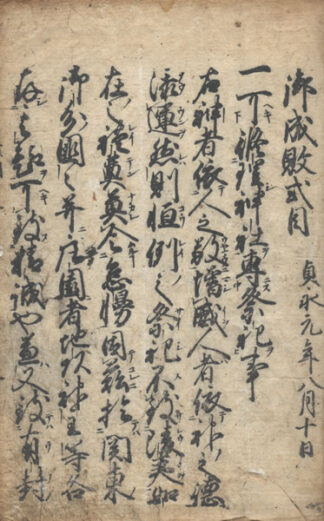 御成敗式目
貞永元年八月十日
一可修理神社專祭祀事
右神者依人之敬増威人者依神之德
添運然則恒例之祭祀不致陵夷如
在之禮奠莫令怠慢因茲於関東
御分國々并庄園者地頭神主等各
存其趣可致精誠也兼又致有封